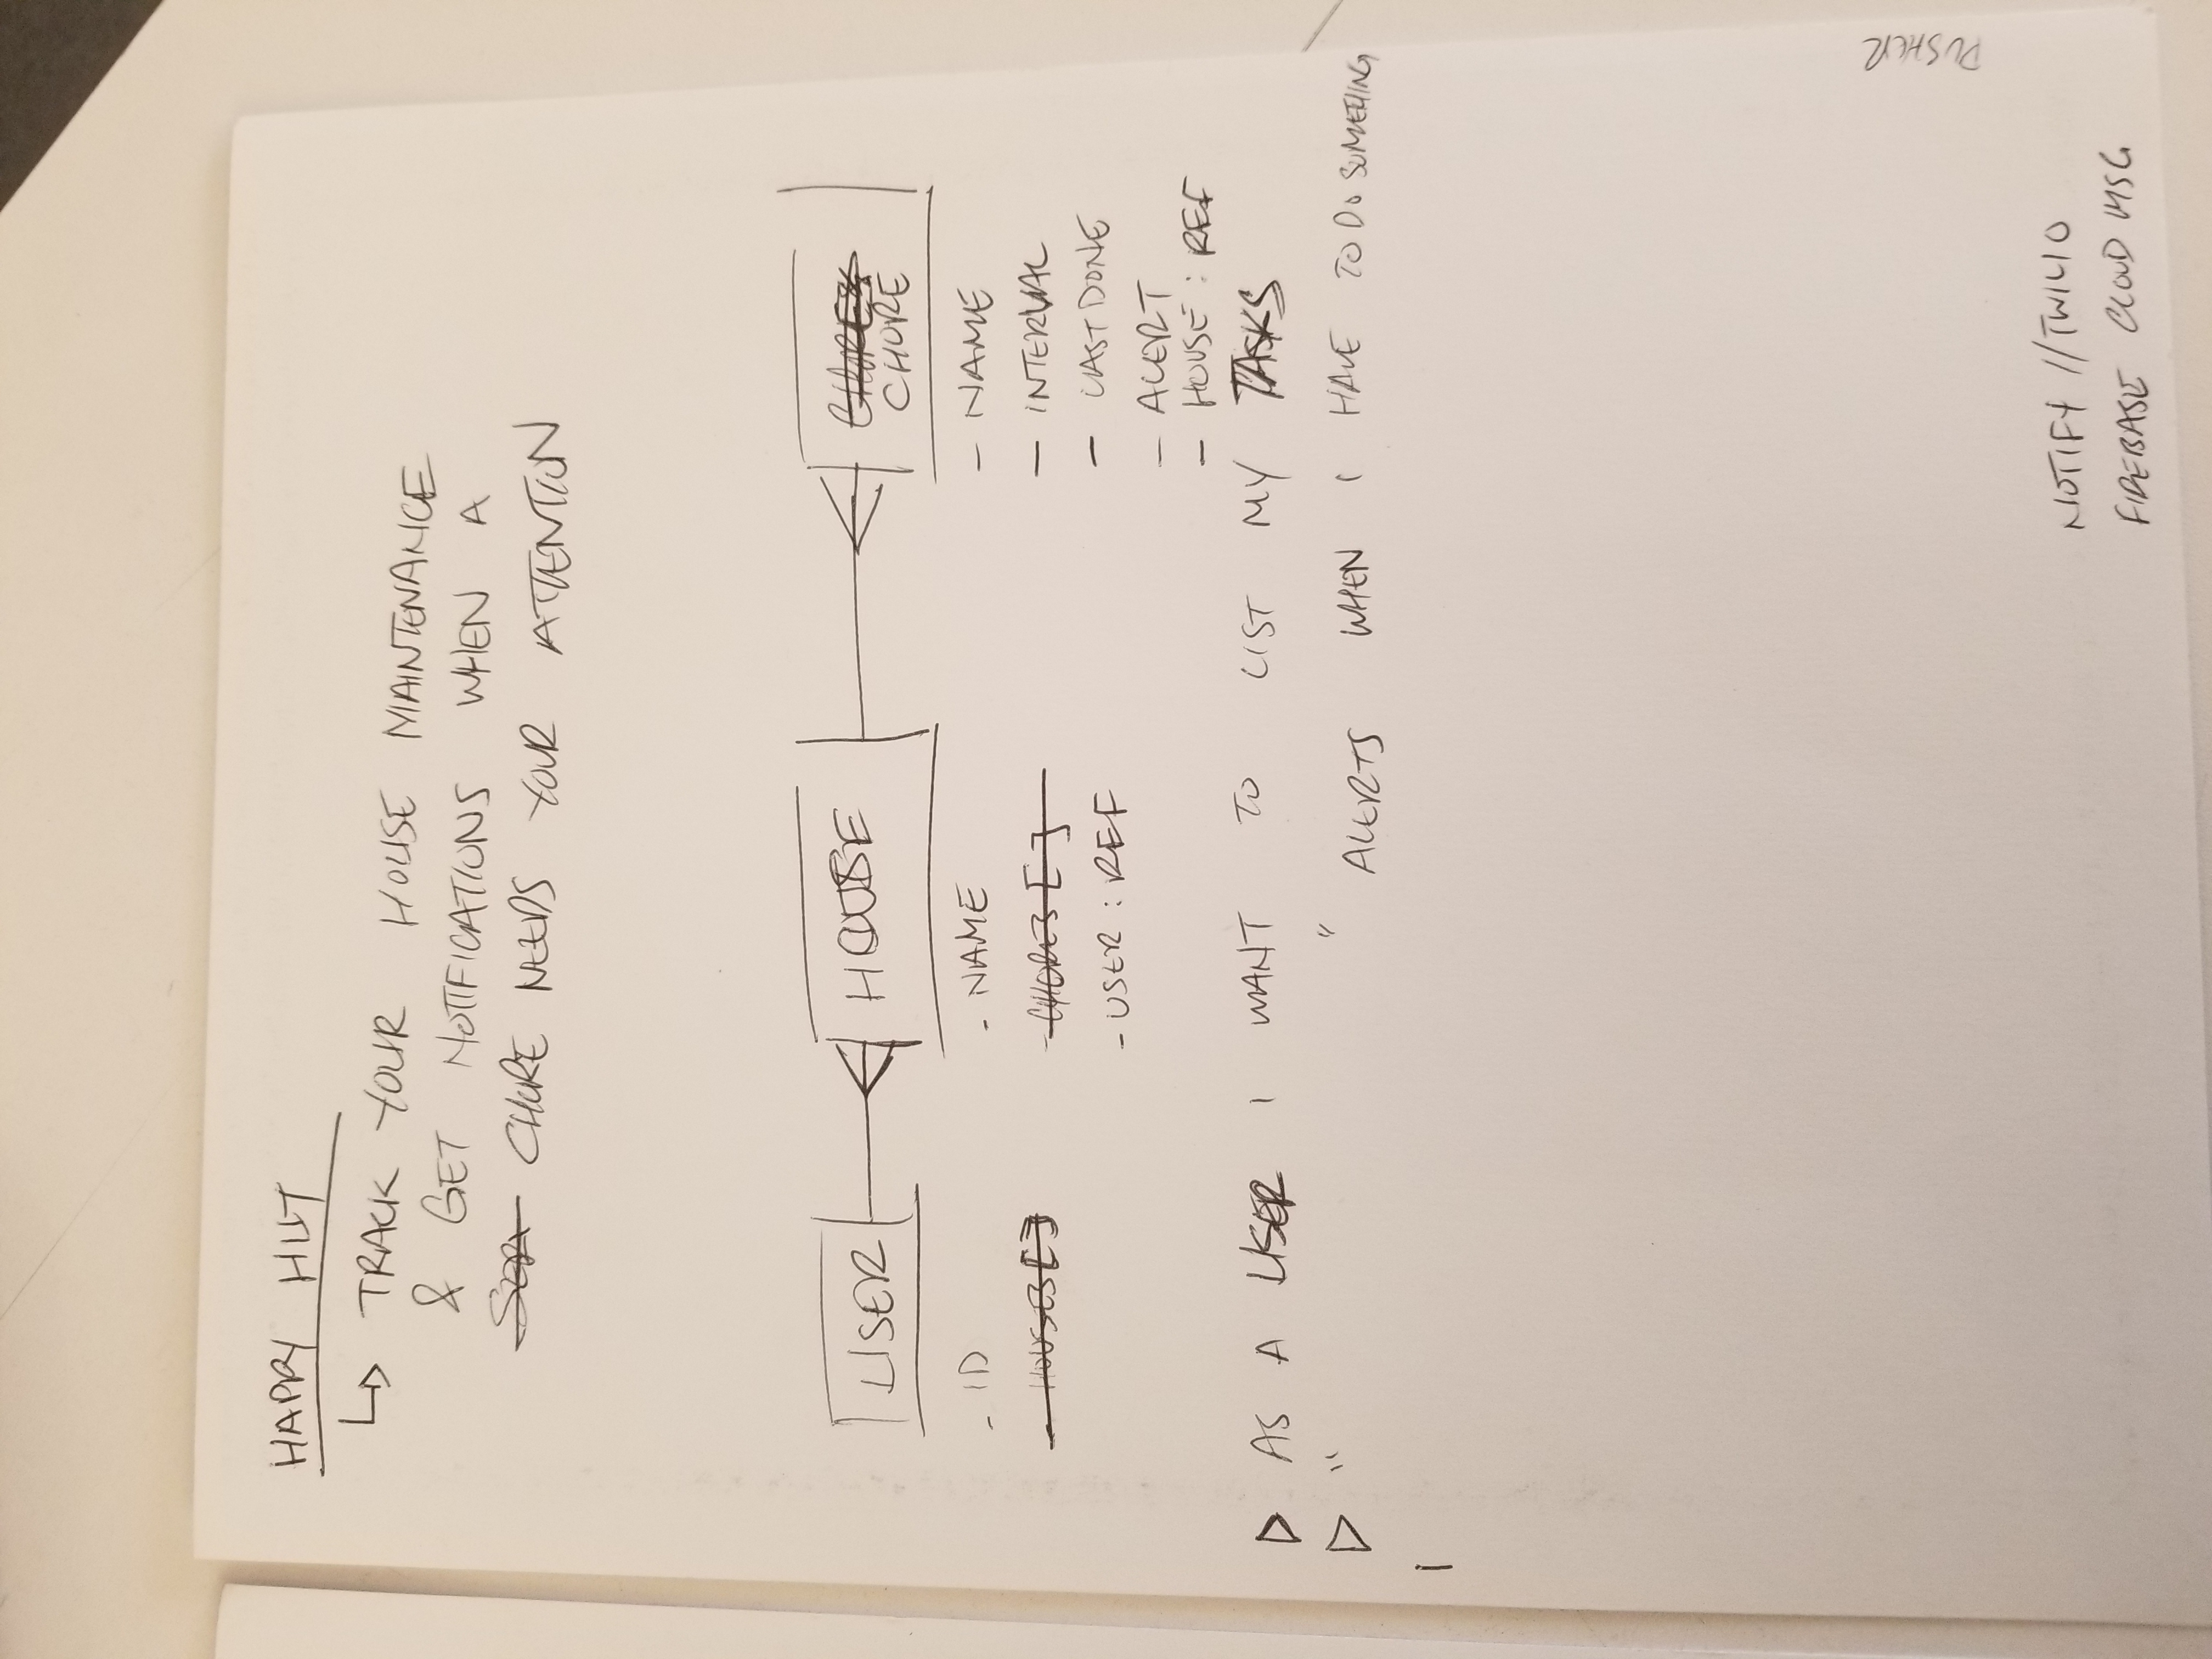 HAPPY HUT
↳ TRACK YOUR HOUSE MAINTENANCE
& GET NOTIFICATIONS WHEN A
CHORE NEEDS YOUR ATTENTION
USER HOUSE CHORES
CHORE
- ID
- HOUSES []
- NAME
- CHORES []
- USER : REF
- NAME
- INTERVAL
- LAST DONE
- ALERT
- HOUSE : REF
▷ AS A USER I WANT TO LIST MY TASKS
▷ " " ALERTS WHEN I HAVE TO DO SOMETHING
PUSHER
NOTIFY // TWILIO
FIREBASE CLOUD MSG